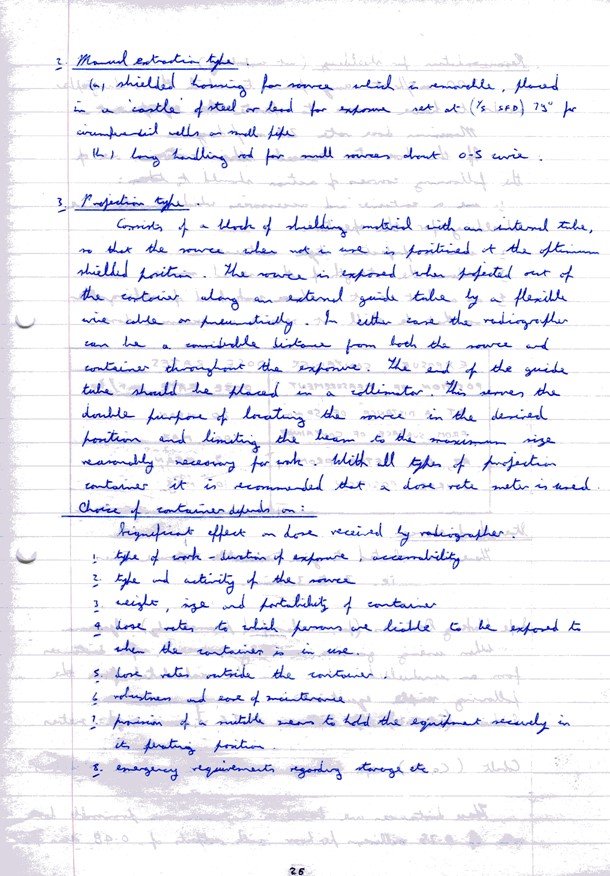 2. Manual extraction type.
(a) shielded housing for source which is removable, placed
in a 'castle' of steel or lead for exposure set at ( SFD) for
circumferencial welds on small pipe
(b.) long handling rod for small sources about 0.5 curie.
3. Projection type.
Consists of a block of shielding material with an internal tube,
so that the source when not in use is positioned at the optimum
shielded position. The source is exposed when pojected out of
the container along an external guide tube by a flexible
wire cable or pneumatically. In either case the radiographer
can be a considerable distance from both the source and
container throughout the exposure. The end of the guide
tube should be placed in a collimator. This serves the
double purpose of locating the source in the desired
position and limiting the beam to the maximum size
reasonably necessary for work. With all types of projection
container it is recommended that a dose rate meter is used.
Choice of container depends on:
Significant effect on dose received by radiographer.
1. type of work - duration of exposure, accessability
2. type and activity of the source
3. weight, size and portability of container
4. dose rates to which persons are liable to be exposed to
when the container is in use.
5. dose rates outside the container.
6. robustness and ease of maintenance
7. provision of a suitable means to hold the equipment securely in
its perating position.
8. emergency requirements regarding storage etc.
26